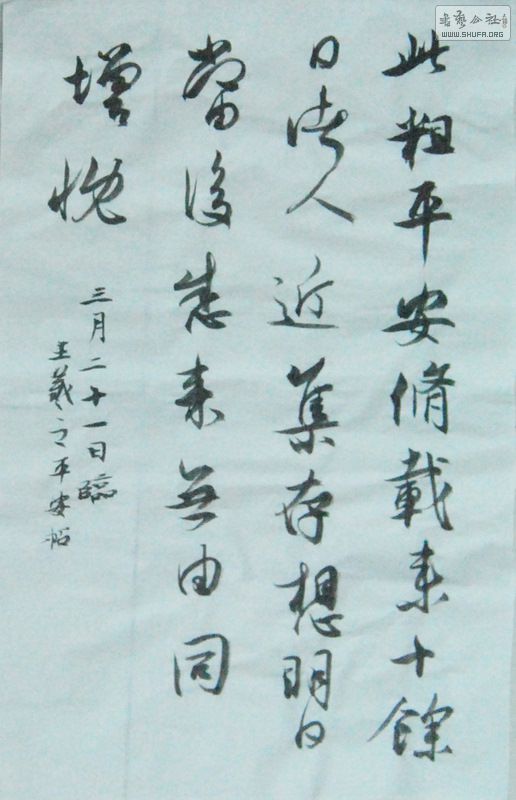 此粗平安脩載来十餘
日诸人近集存想明日
當復悉来無由同
增慨
三月二十一日臨
王羲之平安帖
書藝公社
WWW.SHUFA.ORG